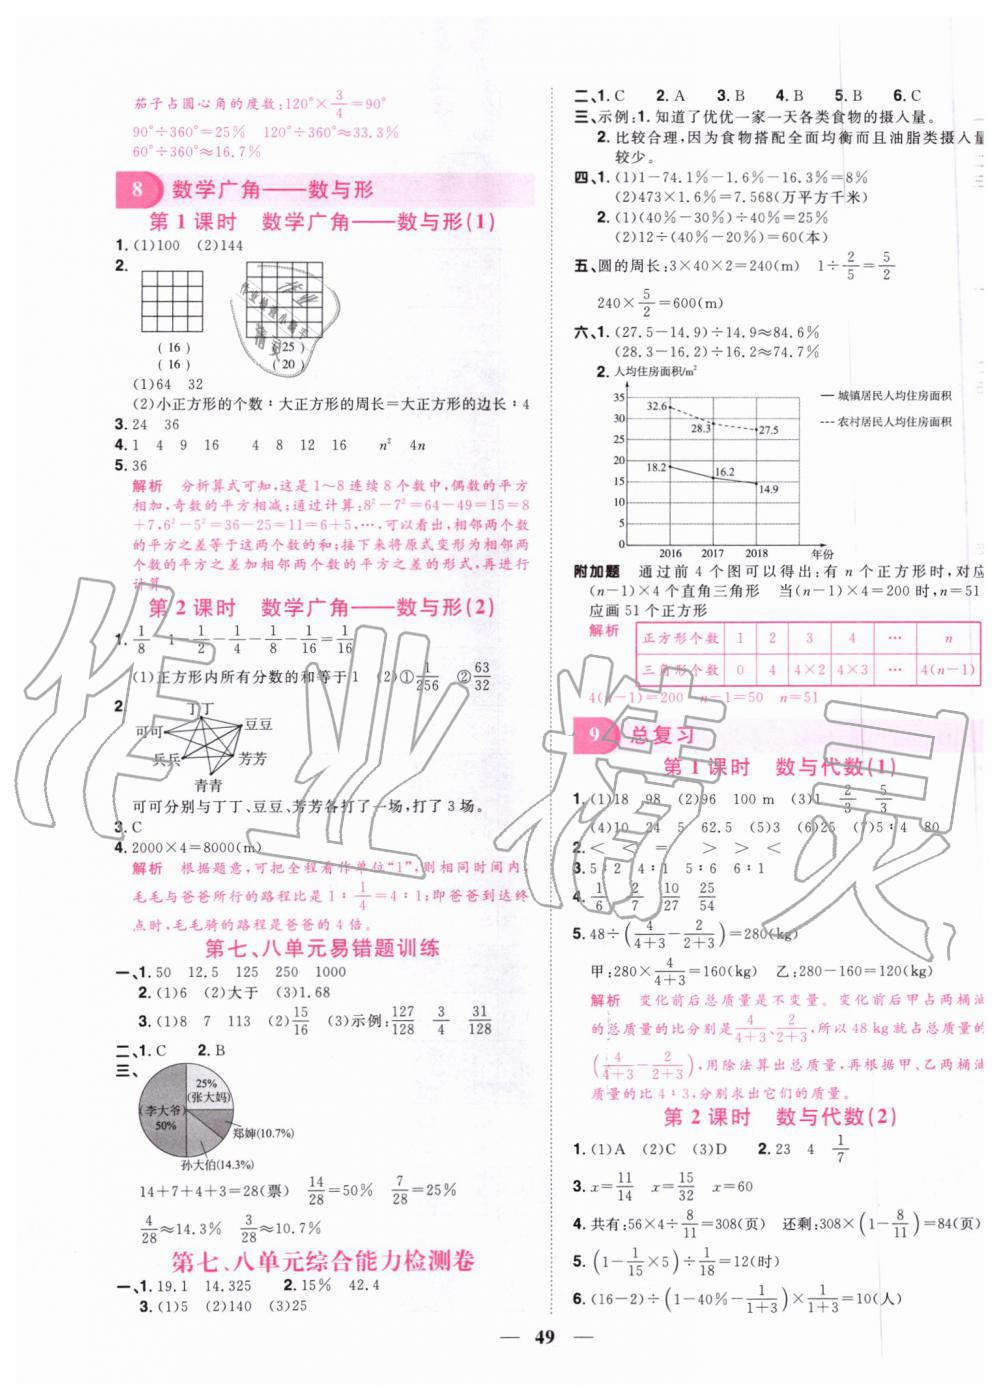 茄子占圆心角的度数:120°×3/4=90°
90°÷360°=25%  120°÷360°≈33.3%
60°÷360°≈16.7%
8 数学广角——数与形
第1课时 数学广角——数与形(1)
1.(1)100 (2)144
2.
(16) (25)
(16) (20)
(1)64 32
(2)小正方形的个数:大正方形的周长=大正方形的边长:4
3.24 36
4.1 4 9 16  4 8 12 16  n² 4n
5.36
解析 分析算式可知,这是1~8连续8个数中,偶数的平方
相加,奇数的平方相减;通过计算:8²-7²=64-49=15=8
+7,6²-5²=36-25=11=6+5,…,可以看出,相邻两个数
的平方之差等于这两个数的和;接下来将原式变形为相邻两
个数的平方之差加相邻两个数的平方之差的形式,再进行
计算
第2课时 数学广角——数与形(2)
1. 1/8 1 1/2-1/4-1/8-1/16=1/16
(1)正方形内所有分数的和等于1 (2)①1/256 ②63/32
2.
丁丁
可可 豆豆
兵兵 芳芳
青青
可可分别与丁丁、豆豆、芳芳各打了一场,打了3场。
3.C
4.2000×4=8000(m)
解析 根据题意,可把全程看作单位“1”,则相同时间内,
毛毛与爸爸所行的路程比是1:1/4=4:1;即爸爸到达终
点时,毛毛骑的路程是爸爸的4倍。
第七、八单元易错题训练
一、1.50 12.5 125 250 1000
2.(1)6 (2)大于 (3)1.68
3.(1)8 7 113 (2)15/16 (3)示例:127/128 3/4 31/128
二、1.C 2.B
三、
25%
(张大妈)
(李大爷)
50%
郑婶(10.7%)
孙大伯(14.3%)
14+7+4+3=28(票) 14/28=50% 7/28=25%
4/28≈14.3% 3/28≈10.7%
第七、八单元综合能力检测卷
一、1.19.1 14.325 2.15% 42.4
3.(1)5 (2)140 (3)25
二、1.C 2.A 3.B 4.B 5.B 6.C
三、示例:1.知道了优优一家一天各类食物的摄入量。
2.比较合理,因为食物搭配全面均衡而且油脂类摄入量
较少。
四、1.(1)1-74.1%-1.6%-16.3%=8%
(2)473×1.6%=7.568(万平方千米)
2.(1)(40%-30%)÷40%=25%
(2)12÷(40%-20%)=60(本)
五、圆的周长:3×40×2=240(m) 1÷2/5=5/2
240×5/2=600(m)
六、1.(27.5-14.9)÷14.9≈84.6%
(28.3-16.2)÷16.2≈74.7%
2. 人均住房面积/m²
35
30
25
20
15
10
5
0
32.6 28.3 27.5
18.2 16.2 14.9
2016 2017 2018 年份
城镇居民人均住房面积
农村居民人均住房面积
附加题 通过前4个图可以得出:有n个正方形时,对应
(n-1)×4个直角三角形 当(n-1)×4=200时,n=51
应画51个正方形
解析
正方形个数 1 2 3 4 … n
三角形个数 0 4 4×2 4×3 … 4(n-1)
4(n-1)=200 n-1=50 n=51
9 总复习
第1课时 数与代数(1)
1.(1)18 98 (2)96 100m (3)1 2/3 5/3
(4)10 24 5 62.5 (5)3 (6)25 (7)5:4 80
2.< < = > > <
3.5:2 4:1 5:6 6:1
4. 1/6 2/7 10/27 25/54
5.48÷(4/(4+3)-2/(2+3))=280(kg)
甲:280×4/(4+3)=160(kg) 乙:280-160=120(kg)
解析 变化前后总质量是不变量。变化前后甲占两桶油
的总质量的比分别是4/(4+3)、2/(2+3),所以48kg就占总质量的
(4/(4+3)-2/(2+3)),用除法算出总质量,再根据甲、乙两桶油
质量的比4:3,分别求出它们的质量。
第2课时 数与代数(2)
1.(1)A (2)C (3)D 2.23 4 1/7
3.x=11/14 x=15/32 x=60
4.共有:56×4÷8/11=308(页) 还剩:308×(1-8/11)=84(页)
5.(1-1/15×5)÷1/18=12(时)
6.(16-2)÷(1-40%-1/(1+3))×1/(1+3)=10(人)
— 49 —
作业精灵